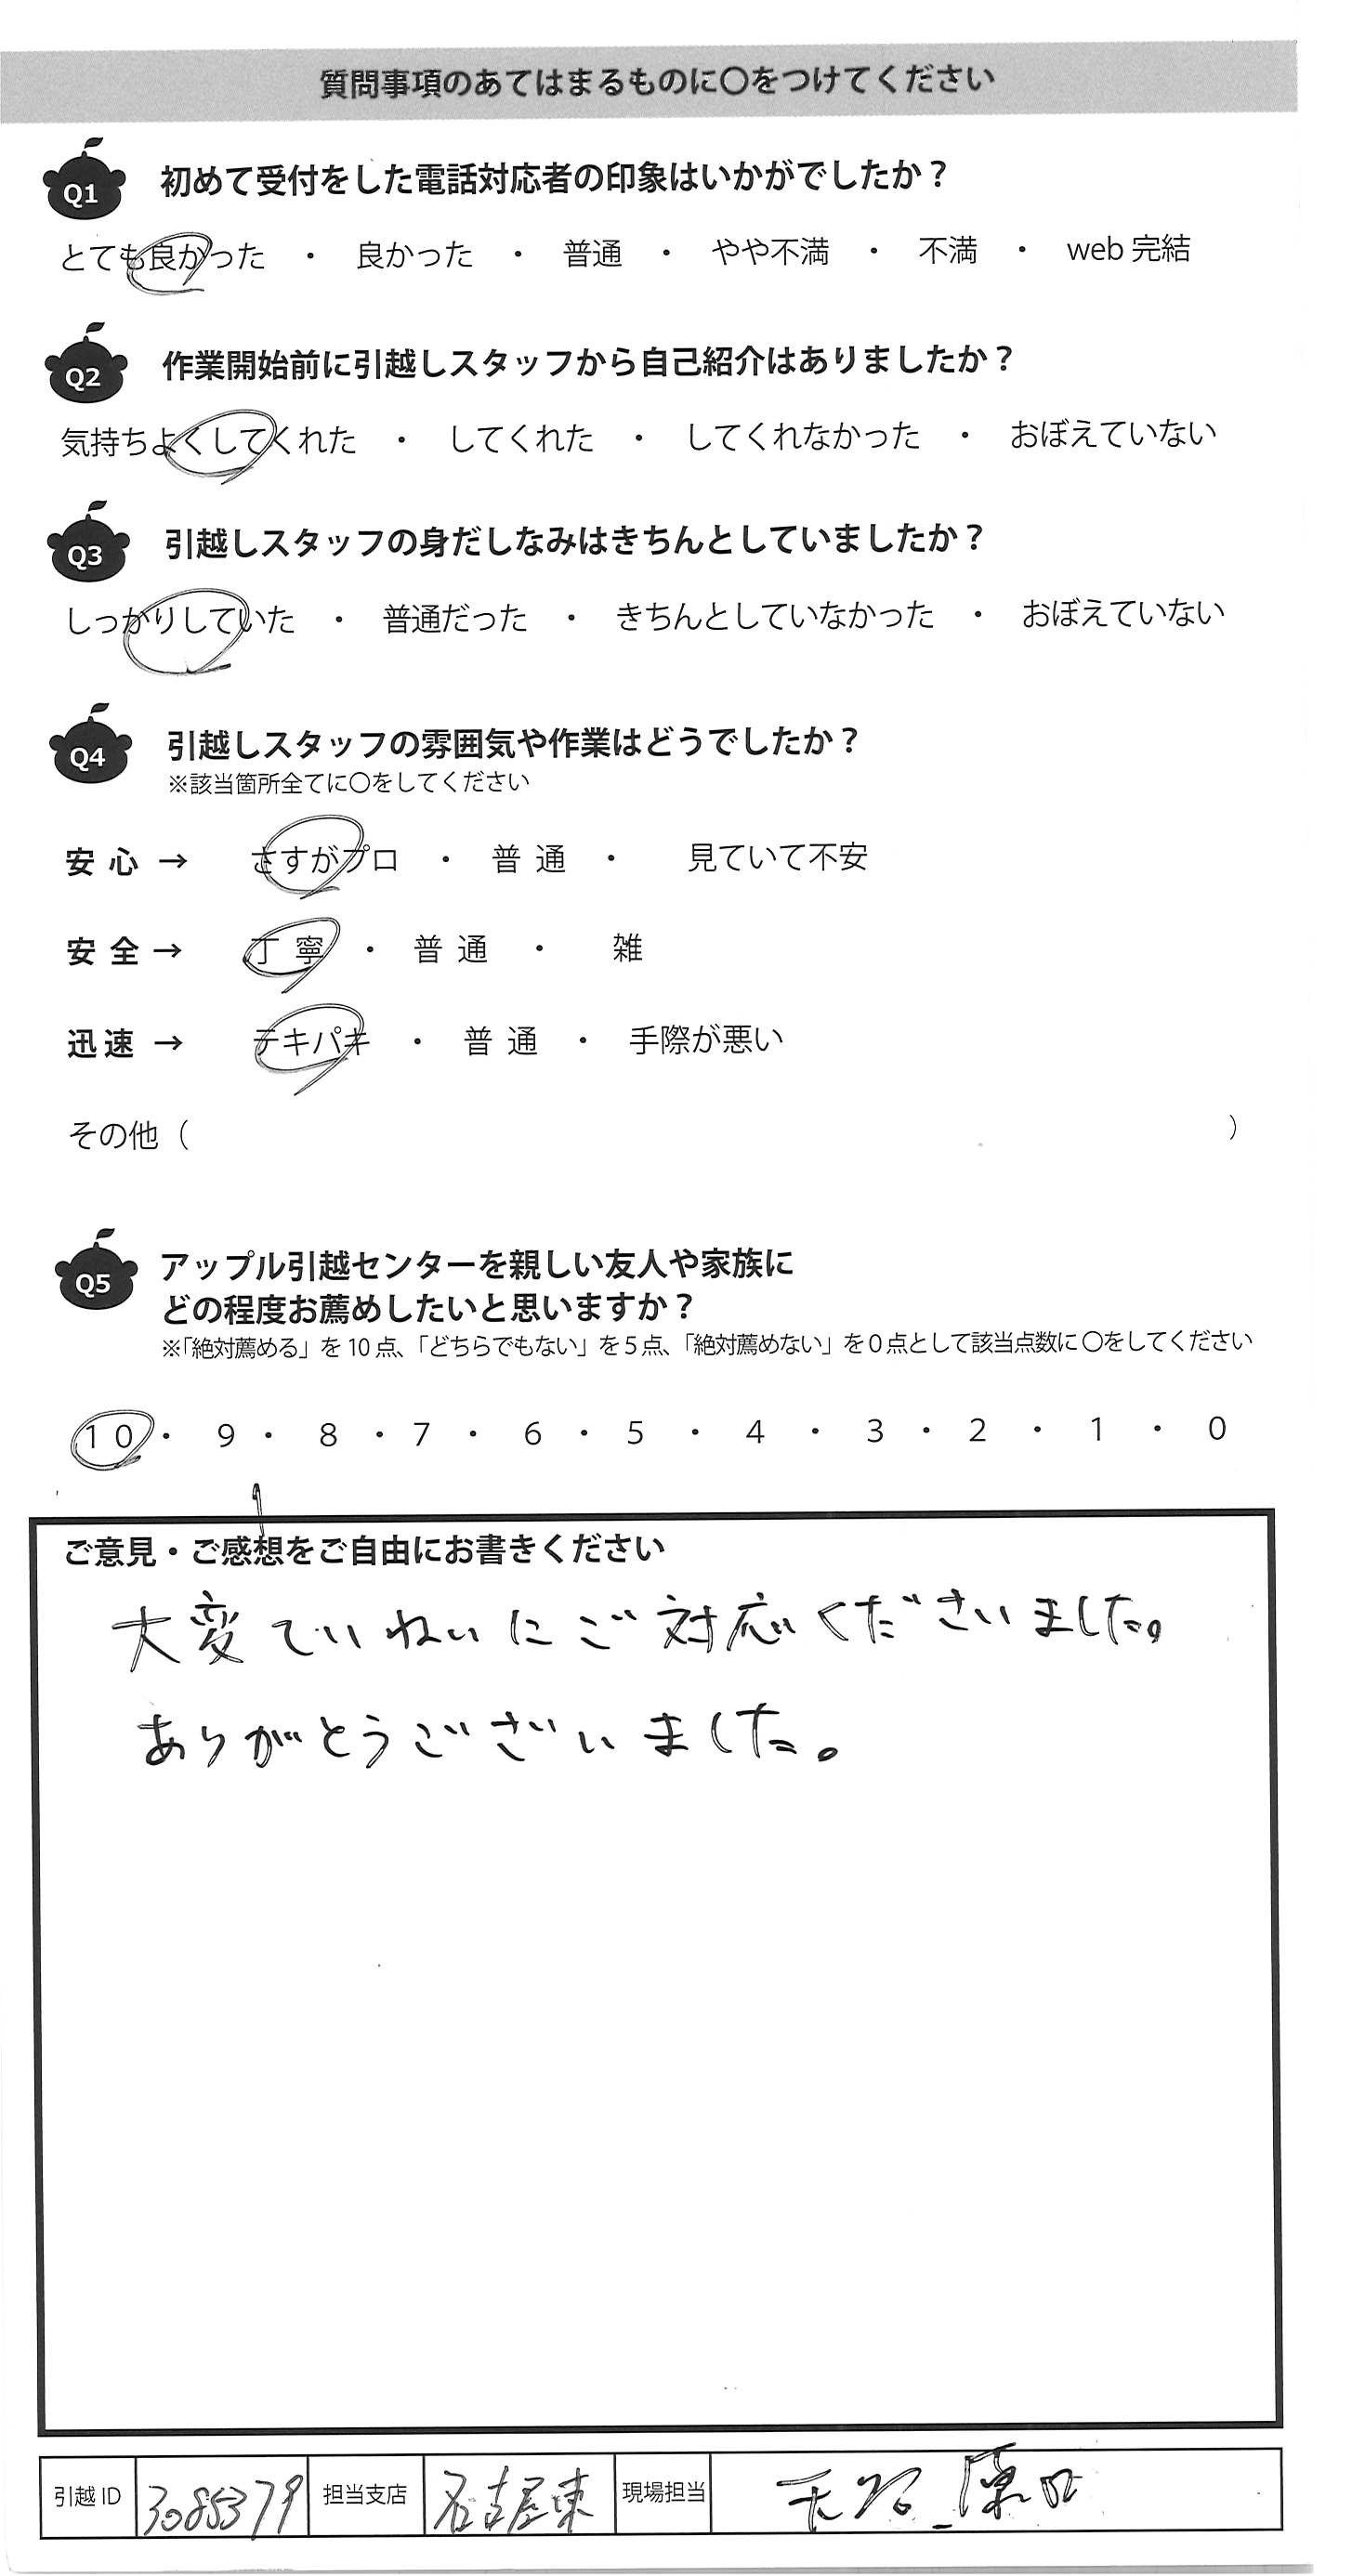 質問事項のあてはまるものに〇をつけてください
Q1 初めて受付をした電話対応者の印象はいかがでしたか？
とても良かった ・ 良かった ・ 普通 ・ やや不満 ・ 不満 ・ web 完結
Q2 作業開始前に引越しスタッフから自己紹介はありましたか？
気持ちよくしてくれた ・ してくれた ・ してくれなかった ・ おぼえていない
Q3 引越しスタッフの身だしなみはきちんとしていましたか？
しっかりしていた ・ 普通だった ・ きちんとしていなかった ・ おぼえていない
Q4 引越しスタッフの雰囲気や作業はどうでしたか？
※該当箇所全てに〇をしてください
安心 → さすがプロ ・ 普通 ・ 見ていて不安
安全 → 丁寧 ・ 普通 ・ 雑
迅速 → テキパキ ・ 普通 ・ 手際が悪い
その他（ ）
Q5 アップル引越センターを親しい友人や家族に
どの程度お薦めしたいと思いますか？
※「絶対薦める」を 10 点、「どちらでもない」を 5 点、「絶対薦めない」を 0 点として該当点数に 〇をしてください
10 ・ 9 ・ 8 ・ 7 ・ 6 ・ 5 ・ 4 ・ 3 ・ 2 ・ 1 ・ 0
ご意見・ご感想をご自由にお書きください
大変ていねいにご対応くださいました。
ありがとうございました。
引越 ID 3085379 担当支店 名古屋東 現場担当